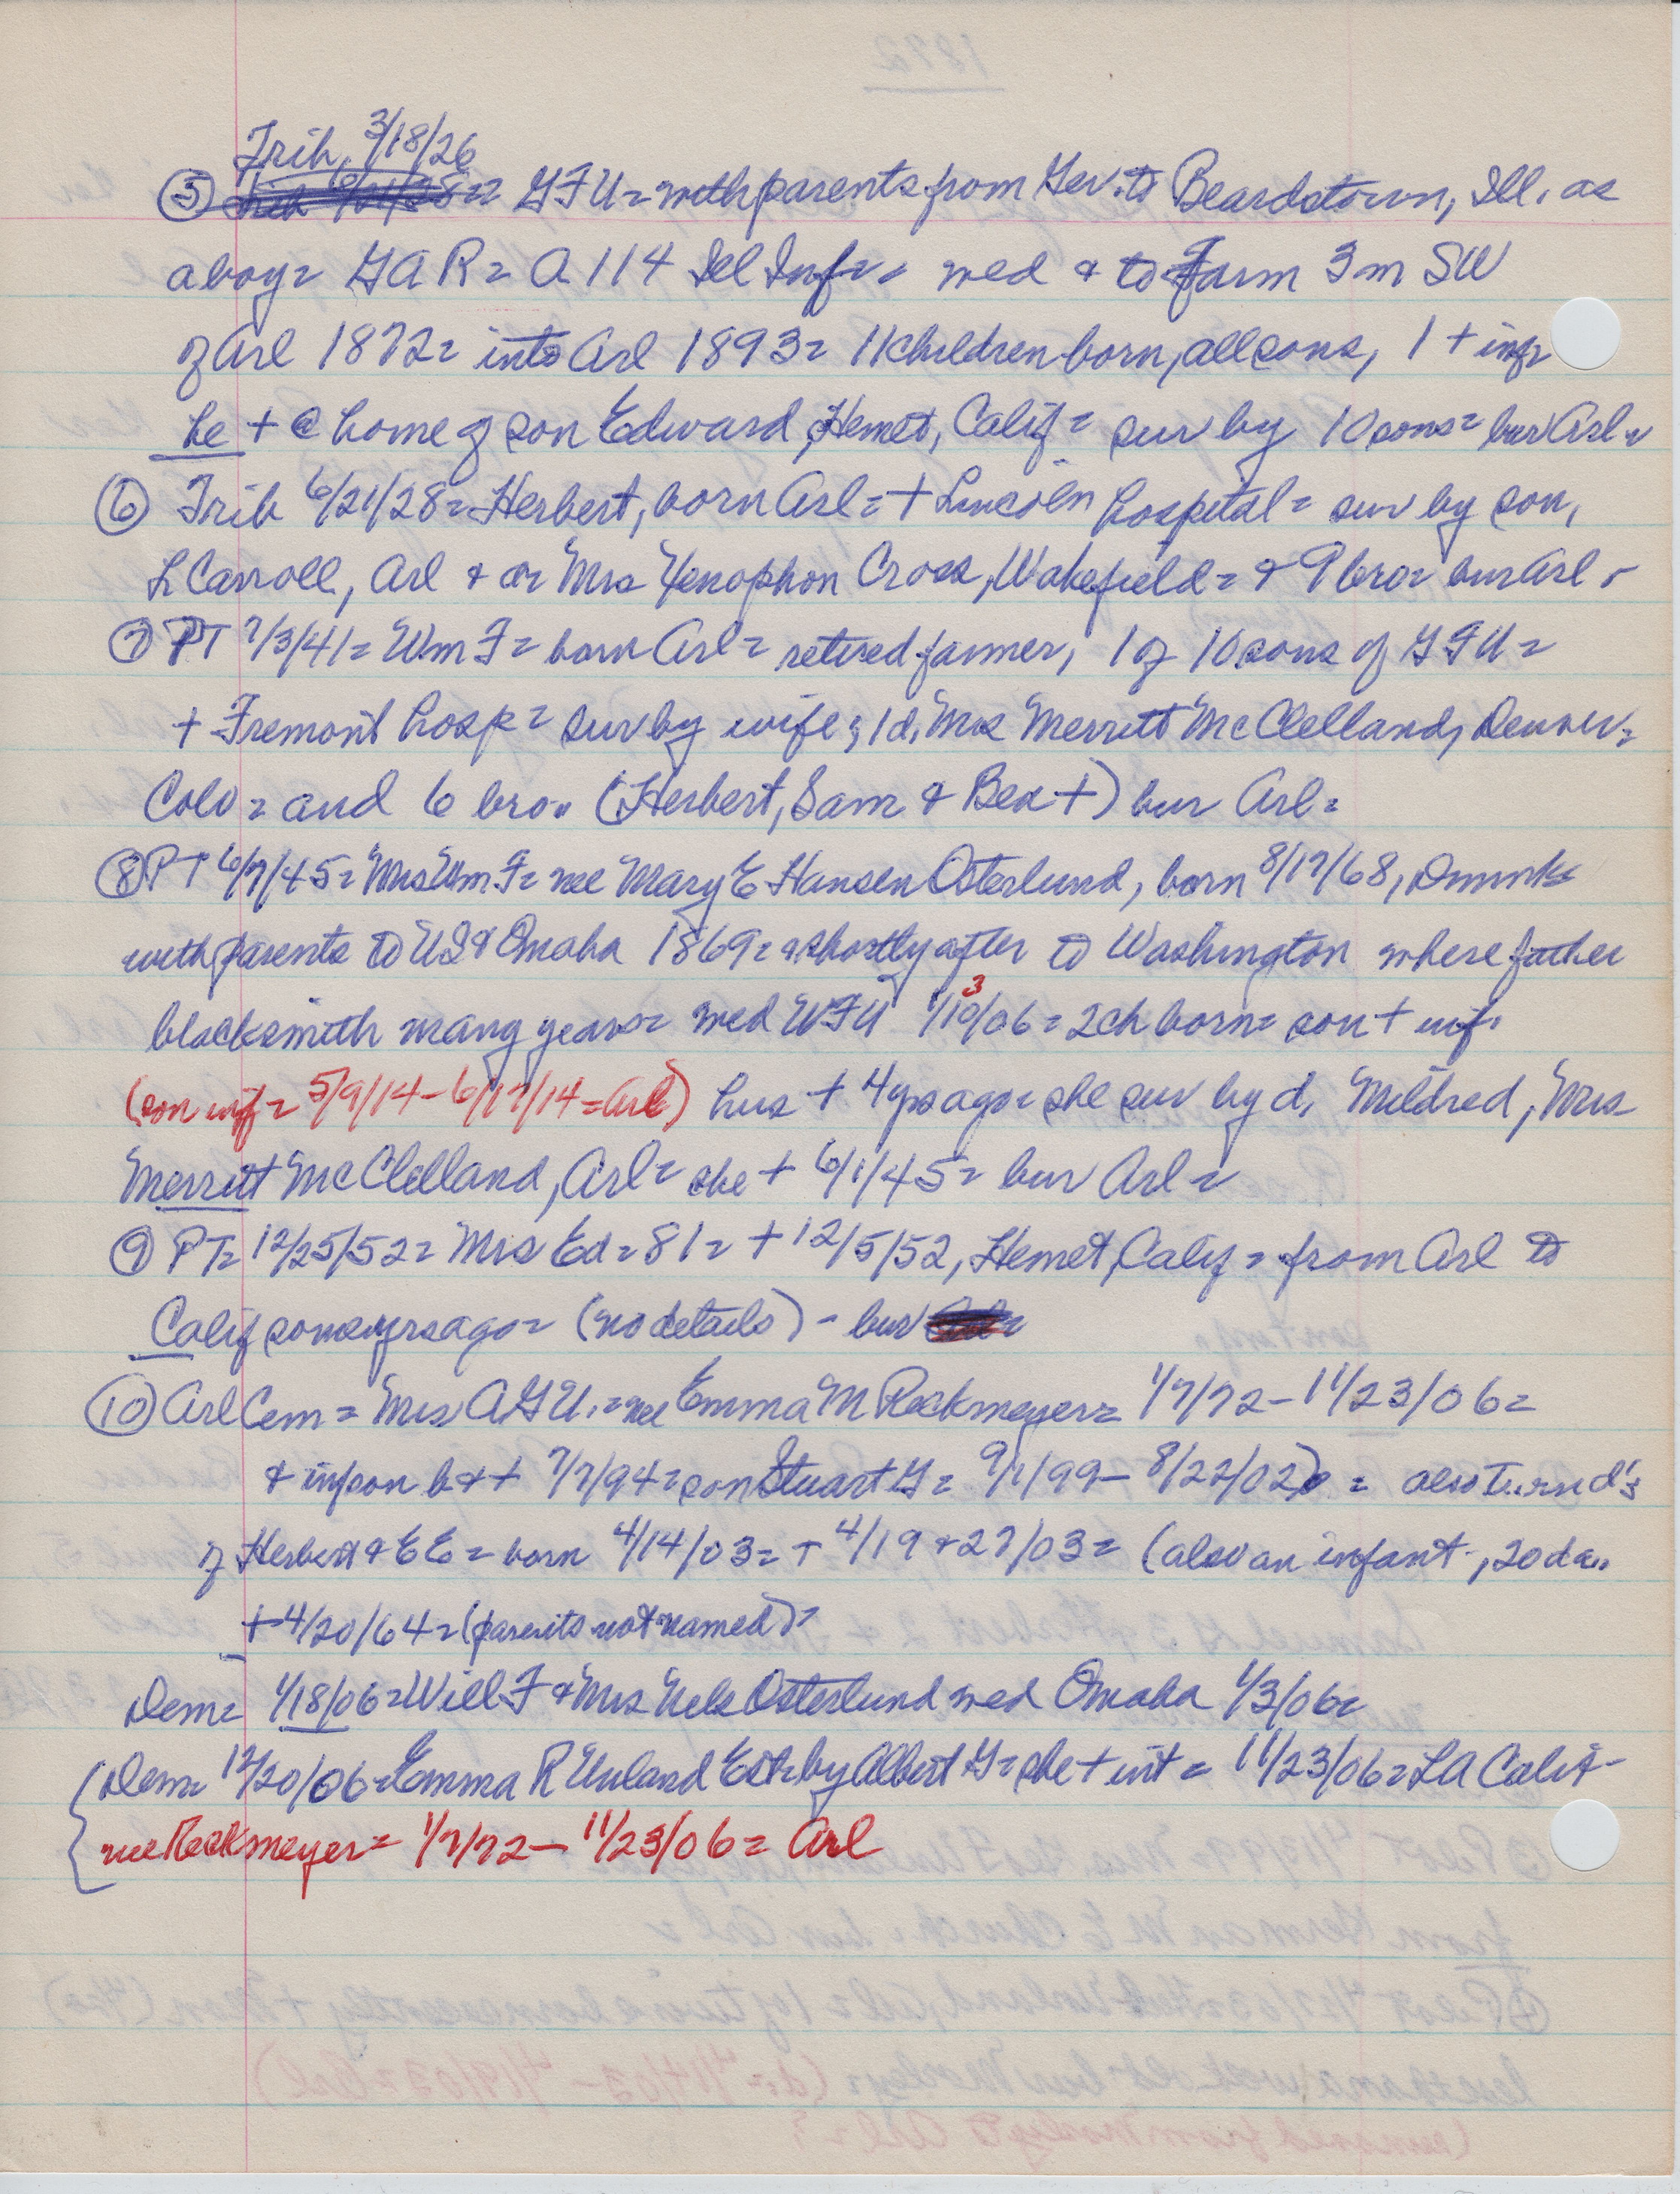 Trib, 3/18/26
⑤ G F U = with parents from Ger. to Beardstown, Ill. as
a boy = G A R = A 114 Ill Inf = = med & to Farm 3 m SW
of Arl 1872 = into Arl 1893 = 11 children born, all sons, 1 + inf =
he + @ home of son Edward, Hemet, Calif = sur by 10 sons = bur Arl =
⑥ Trib 6/21/28 = Herbert, born Arl = + Lincoln hospital = sur by son,
L Carroll, Arl & dr Mrs Xenophon Cross, Wakefield = & 9 bro = bur Arl =
⑦ PT 7/3/41 = Wm F = born Arl = retired farmer, 1 of 10 sons of G F U =
+ Fremont hosp = sur by wife; 1 d, Mrs Merritt McClelland, Denver,
Colo = and 6 bro = (Herbert, Sam & Ben +) bur Arl =
⑧ PT 6/7/45 = Mrs Wm F = nee Mary E Hansen Osterlund, born 8/17/68, Denmk =
with parents to US & Omaha 1869 = & shortly after to Washington where father
blacksmith many years = med W F U 1/10/06 = 2 ch born = son + inf.
3
(son inf = 5/9/14 - 6/17/14 = Arl) hus + 4 yrs ago = she sur by d, Mildred, Mrs
Merritt McClelland, Arl = she + 6/1/45 = bur Arl =
⑨ PT = 12/25/52 = Mrs Ed = 81 = + 12/5/52, Hemet, Calif = from Arl to
Calif some yrs ago = (no details) - bur
⑩ Arl Cem = Mrs A G U. = nee Emma M Reckmeyer = 1/7/72 - 11/23/06 =
& inf son b & + 7/7/94 = son Stuart G = 9/1/99 - 8/22/02 = also Twin d's
of Herbert & E E = born 4/14/03 = + 4/19 & 27/03 = (also an infant, 20 da..
+ 4/20/64 = (parents not named) =
Dem = 1/18/06 = Will F & Mrs Nels Osterlund med Omaha 1/3/06 =
(Dem = 12/20/06 = Emma R Unland Est = by Albert G = she + int = 11/23/06 = LA Calif -
nee Reckmeyer = 1/7/72 - 11/23/06 = Arl